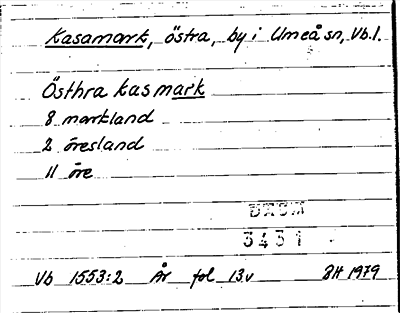 Kasamark, östra, by i Umeå sn, Vb.l.
Östhra kasmark
8 markland
2 öresland
11 öre
DAUM
3431
Vb 1553:2 År fol 13.v BH 1979